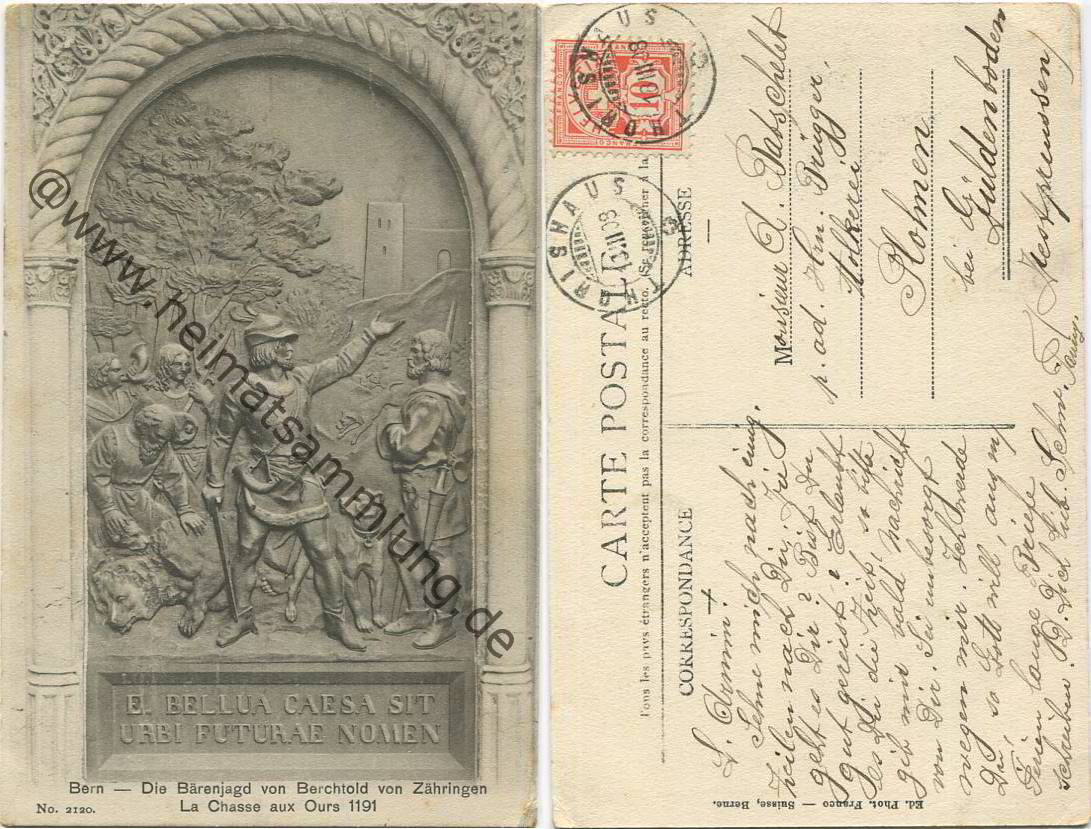 E. BELLUA CAESA SIT
URBI FUTURAE NOMEN
Bern — Die Bärenjagd von Berchtold von Zähringen
La Chasse aux Ours 1191
No. 2120.
@www.heimatsammlung.de
THÖRISHAUS
10
FRANCO
HELVETIA
THÖRISHAUS
CARTE POSTALE
Tous les pays étrangers n'acceptent pas la correspondance au recto. (Se renseigner à la
CORRESPONDANCE
ADRESSE
Monsieur A. Badschelet
p. ad. Hrn. Brügger,
Molkerei
Plohnen
bei Güldenboden
Westpreussen
L. Armin!
Sehne mich nach einig.
Zeilen nach Dir. Wie
geht es Dir? Bist Du
gut gereist? Erlaubt
es Dir die Zeit, so bitte
gib mir bald Nachricht
von Dir. Sei unbesorgt
wegen mir. Ich werde
Dir, so Gott will, angn
Feiern lange Briefe
schreiben. D. Dich lb. Schw.
Fanny.
Ed. Phot. Franco — Suisse, Berne.